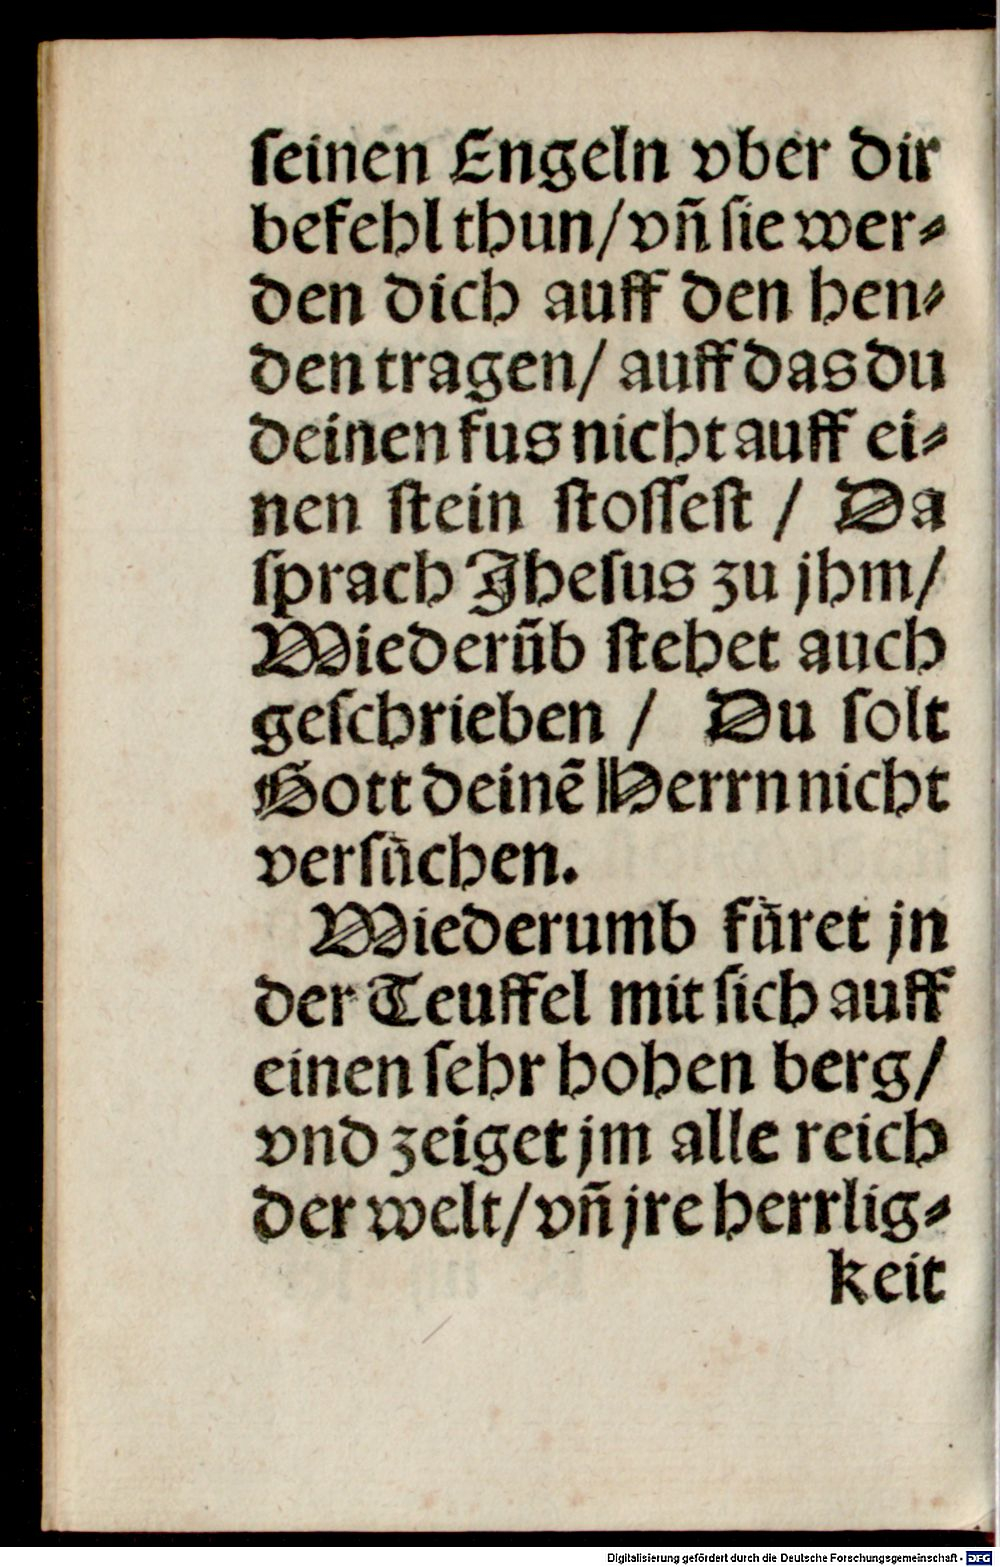 ſeinen Engeln vber dir
befehl thun/vñ ſie wer⸗
den dich auff den hen⸗
den tragen/ auff das du
deinen fus nicht auff ei⸗
nen ſtein ſtoſſeſt / Da
ſprach Jheſus zu jhm/
Wiederũb ſtehet auch
geſchrieben / Du ſolt
Gott deinẽ Herrn nicht
verſuͤchen.
Wiederumb fuͤret jn
der Teuffel mit ſich auff
einen ſehr hohen berg/
vnd zeiget jm alle reich
der welt/vñ jre herrlig⸗
keit
Digitalisierung gefördert durch die Deutsche Forschungsgemeinschaft - DFG